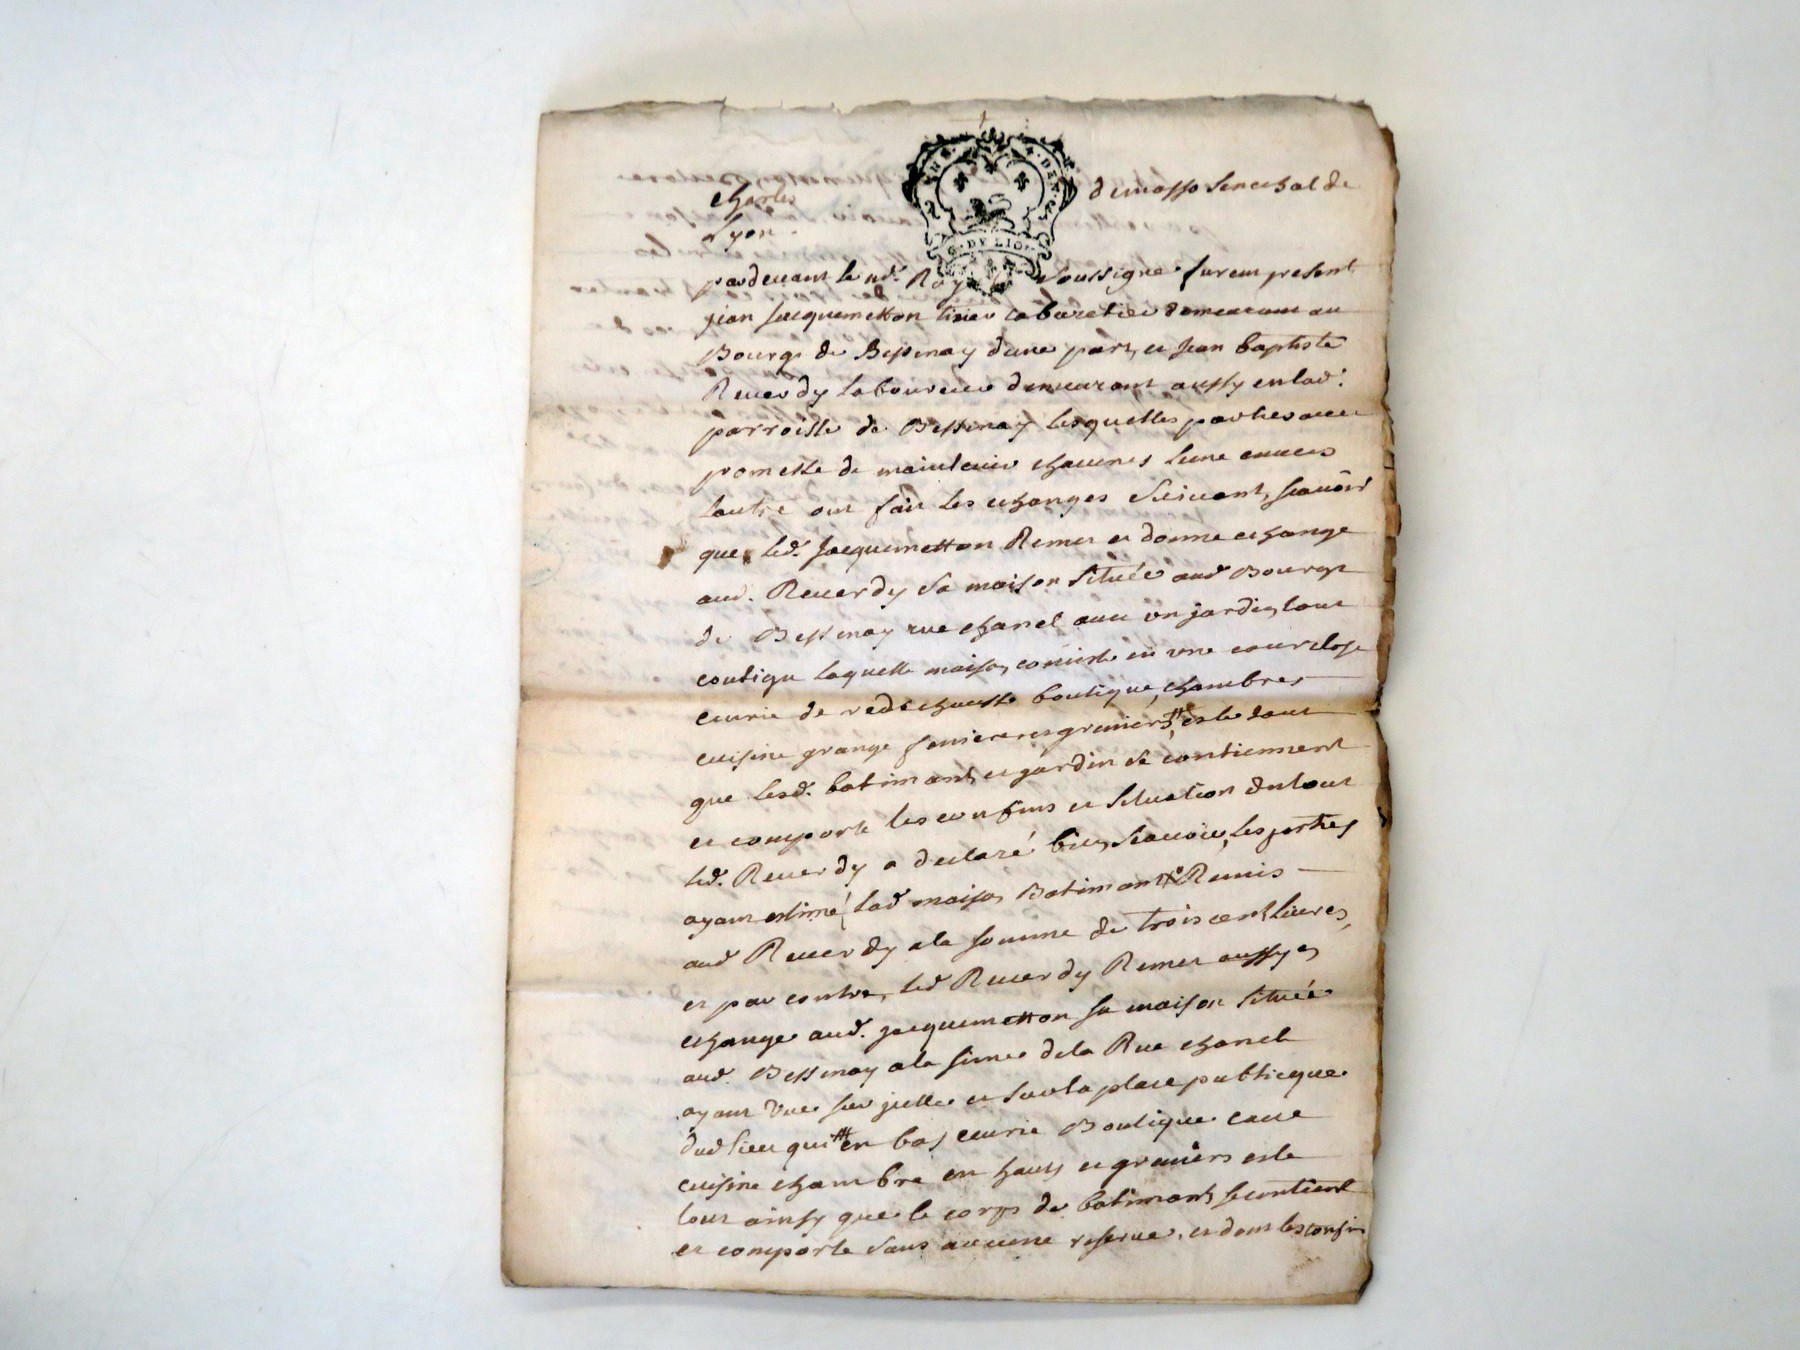 charles demasso senechal de
Lyon.
G. DV LION
pardevant le nd. Royal soussigné furent present
jean Jacquemetton tixier cabaretier demeurant au
Bourgt de Bessenay dune part, et Jean baptiste
Reverdy laboureur demeurant aussy en lad.
parroisse de Bessenay lesquelles parties avec
promesse de maintenir chacunes lune envers
lautre ont fait les echanges suivant, scavoir
que led. Jacquemetton Remet et donne echange
aud. Reverdy sa maison située aud Bourgt
de Bessenay rue chanel avec un jardin, tout
contigu laquelle maison, consiste en une cour close
ecurie de rede chaussé boutique, chambres
cuisine grange feniere et greniers, et le tout
que lesd. batimants et jardin se contiennent
et comporte les confins et situation du tout
led. Reverdy a declaré bien scavoir, les parties
ayant estimé lad maison Batimants Remis
aud Reverdy a la somme de trois cent livres,
et par contre, led Reverdy Remet aussy en
echange aud. Jacquemetton sa maison située
aud. Bessenay a la sime de la Rue chanel
ayant vue sur jcelle et sur la place publicque
dud lieu qui en bas ecurie Boutique cave
cuisine chambre en hauts et greniers et le
tout ainsy que le corps de batimants se contient
et comporte sans aucune reserve, et dont les confins